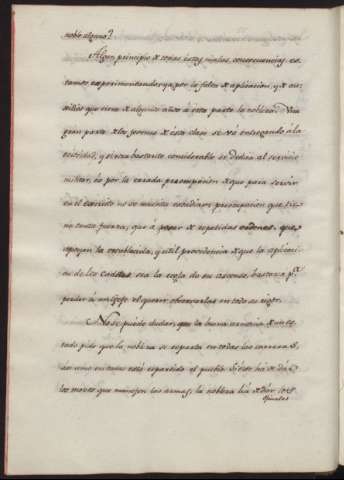 noble alguno?
Algun principio de todas estas malas consecuencias es-
tamos experimentando ya, por la falta de aplicacion, y de au-
xilios que tiene de algunos años á esta parte la nobleza. Una
gran parte de los jovenes de ésta clase se vé entregando á la
ociosidad, y si otra bastante considerable se dedica al servicio
militar, es por la errada preocupacion de que para servir
en el exercito no se necesita estudiar: preocupacion que tie-
ne tanta fuerza, que á pesar de repetidas ordenes, que
apoyan la establecida, y util providencia de que la aplicaci-
on de los Cadetes sea la regla de su ascenso, bastara pª.
perder á un Gefe el querer observarlas en todo su rigor.
No se puede dudar, que la buena armonia de un es-
tado pide que la nobleza se reparta en todas las carreras,
asi como en todas está repartido el pueblo. Si éste ha de dár
los brazos que manejen las armas, la nobleza ha de dár los
Oficiales